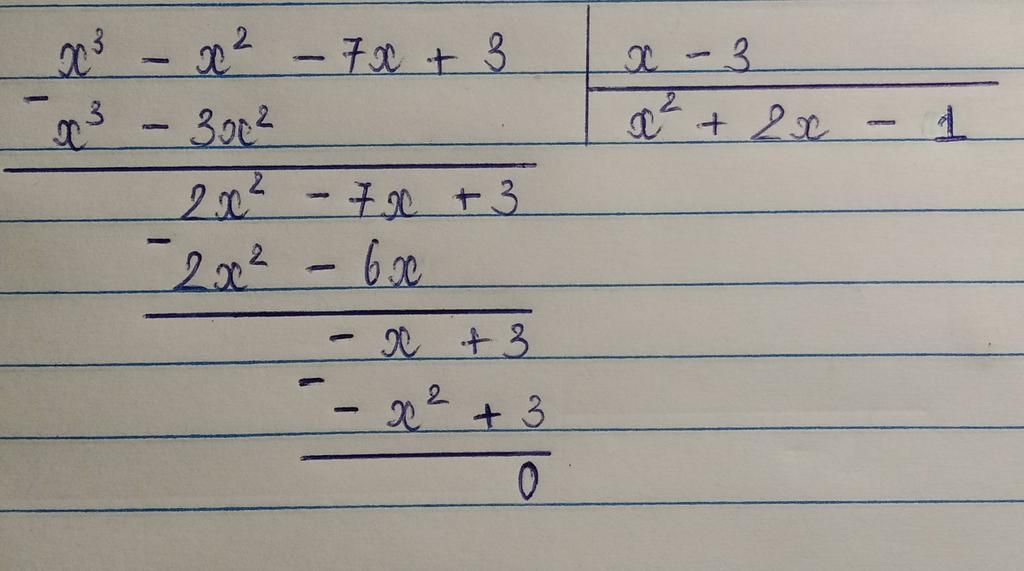 x³ - x² - 7x + 3 | x - 3
- x³ - 3x² | x² + 2x - 1
2x² - 7x + 3
- 2x² - 6x
- x + 3
- - x² + 3
0